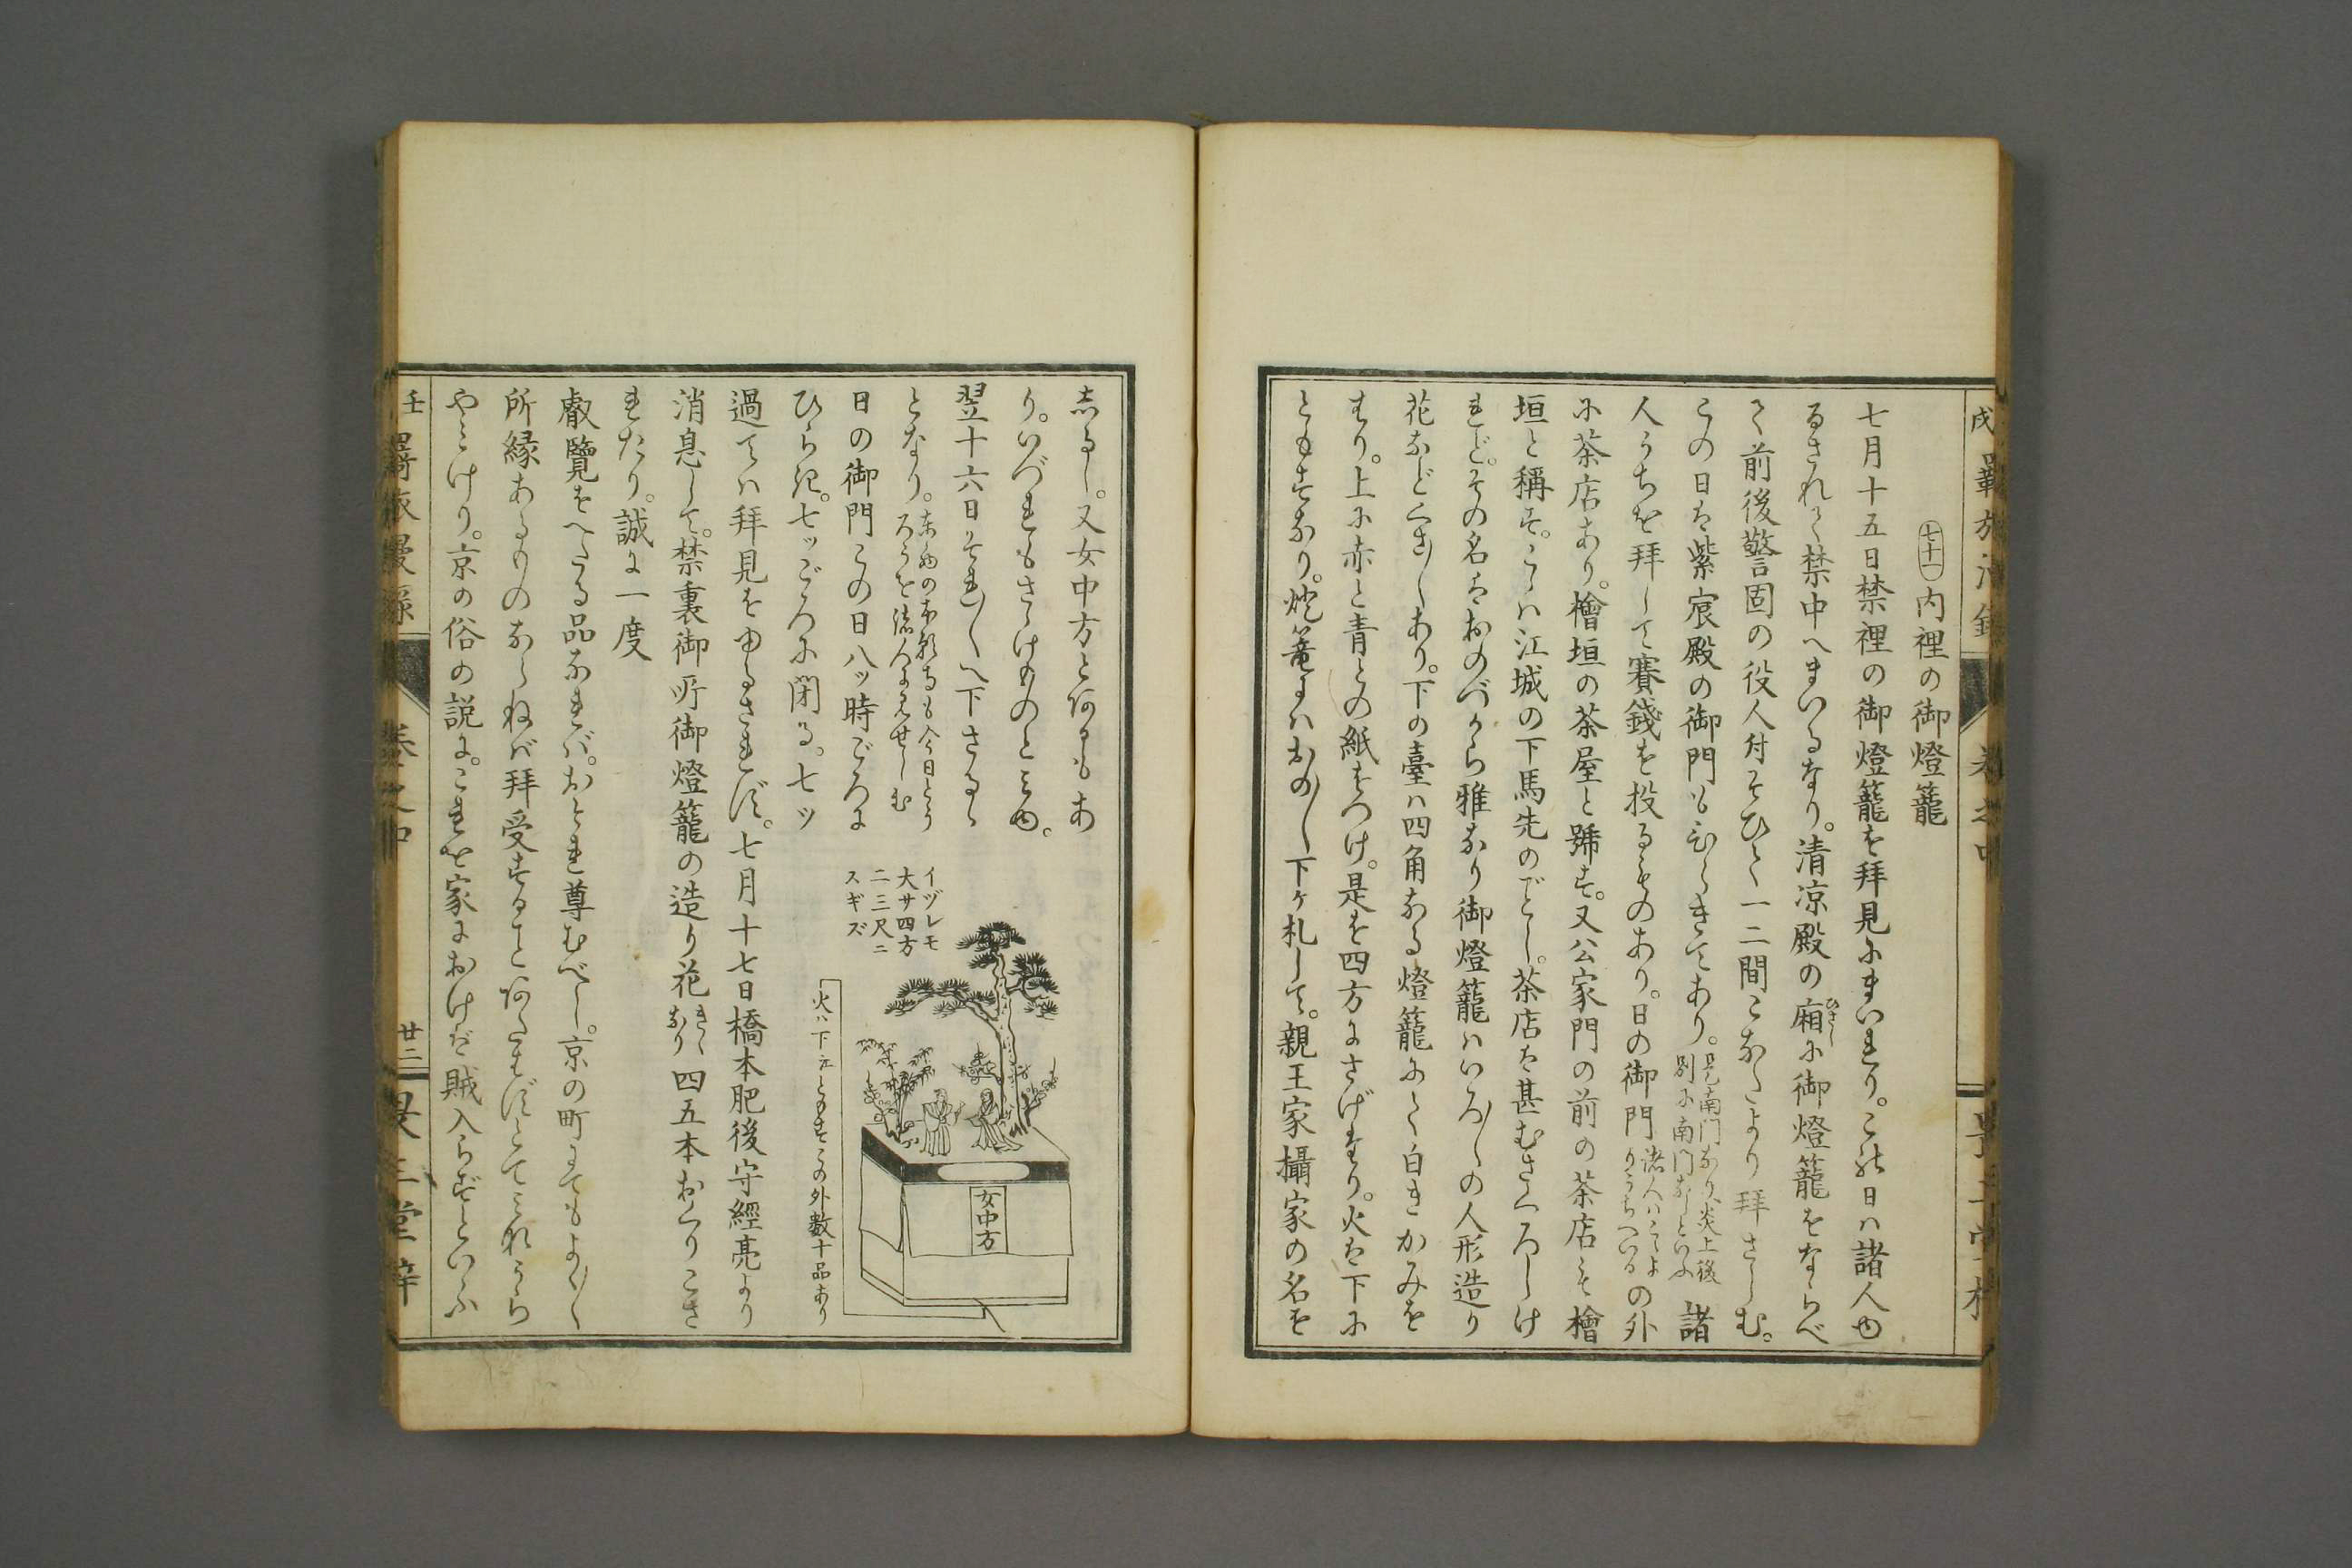 七十一 内裡の御燈籠
七月十五日禁裡の御燈籠を拝見にまいれり。この日ハ諸人ゆ
るされて禁中へまいるなり。清凉殿の廂に御燈籠をならべ
ひさし
て前後警固の役人付そひて一二間こなたより拝さしむ。
この日は紫宸殿の御門もひらきてあり。
是南門なり炎上後
別に南門なしといふ
諸
人うちを拝して賽錢を投るものあり。日の御門
諸人ハこゝよ
りうちへいる
の外
に茶店あり。檜垣の茶屋と號す。又公家門の前の茶店をも檜
垣と稱す。こゝハ江城の下馬先のごとし。茶店は甚むさくろしけ
れど。その名はおのづから雅なり御燈籠ハいろ〳〵の人形造り
花などくさ〴〵あり。下の臺ハ四角なる燈籠にて白きかみを
はり。上に赤と青との紙をつけ。是を四方にさげたり。火は下に
ともすなり。燈篭にハおの〳〵下ヶ札して。親王家攝家の名を
しるし。又女中方とあるもあ
り。いづれもさゝげものと見ゆ。
翌十六日それ〳〵へ下さるゝ
となり。
東西の本願寺も今日とう
ろうを諸人に見せしむ
日の御門この日八ッ時ごろに
ひらき。七ッごろに閉る。七ッ
過てハ拝見をゆるされず。七月十七日橋本肥後守經亮より
消息して。禁裏御所御燈籠の造り花
きく
なり
四五本おくりこさ
れたり。誠に一度
叡覽をへたる品なれバ。おそれ尊むべし。京の町にてもよく〳〵
所縁あるものならねバ拝受することあたはずとてこれをうら
やミけり。京の俗の説に。これを家におけば賊入らずといふ
イヅレモ
大サ四方
二三尺ニ
スギズ
火ハ下ニともすこの外數十品あり
女中方
戌 羇旅漫録 巻之中
壬 羇旅漫録 巻之中 廿二